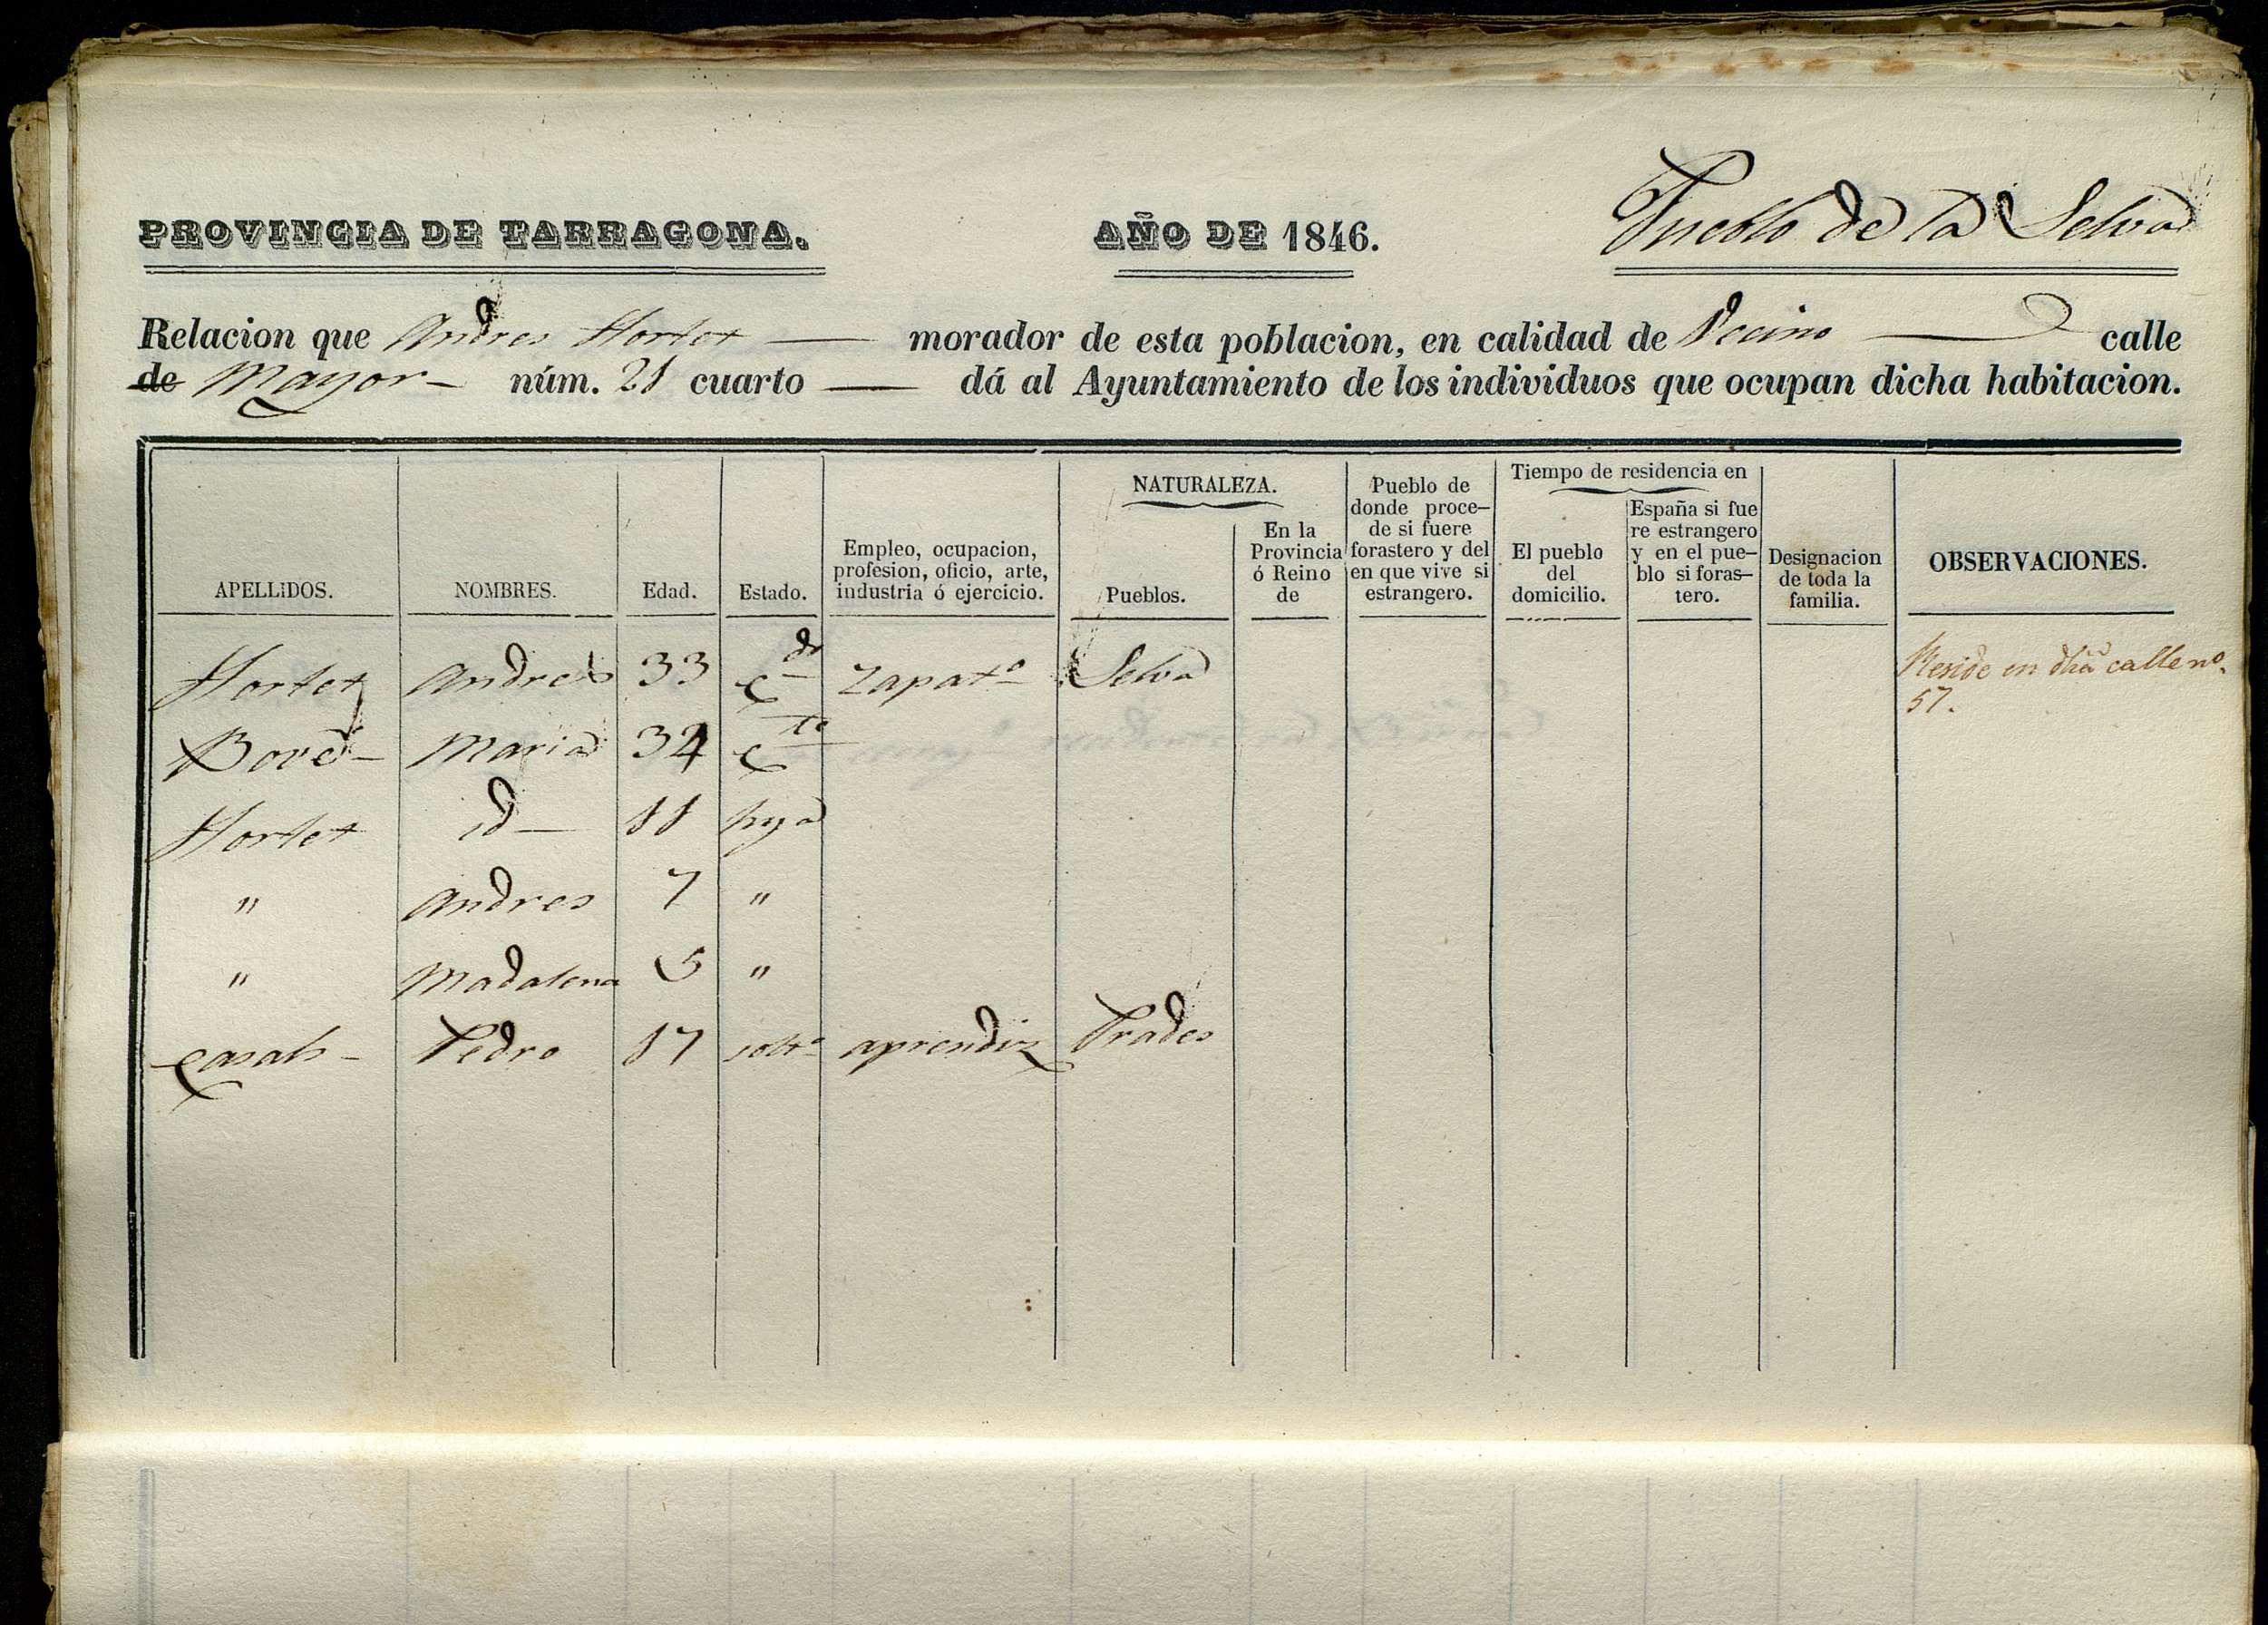 PROVINCIA DE TARRAGONA. AÑO DE 1846. Pueblo de la Selva
Relacion que Andres Hortet — morador de esta poblacion, en calidad de Vecino — calle
de Mayor - núm. 21 cuarto — dá al Ayuntamiento de los individuos que ocupan dicha habitacion.
APELLIDOS.
NOMBRES.
Edad.
Estado.
Empleo, ocupacion,
profesion, oficio, arte,
industria ó ejercicio.
NATURALEZA.
Pueblos.
En la
Provincia
ó Reino
de
Pueblo de
donde proce-
de si fuere
forastero y del
en que vive si
estrangero.
Tiempo de residencia en
El pueblo
del
domicilio.
España si fue
re estrangero
y en el pue-
blo si foras-
tero.
Designacion
de toda la
familia.
OBSERVACIONES.
Hortet Andres 33 C.do Zapat.o Selva Reside en dha calle no.
57.
Boré - Maria 34 C.ta
Hortet id — 11 hija
" Andres 7 "
" Madalena 5 "
Casals - Pedro 17 solt.o aprendiz Prades